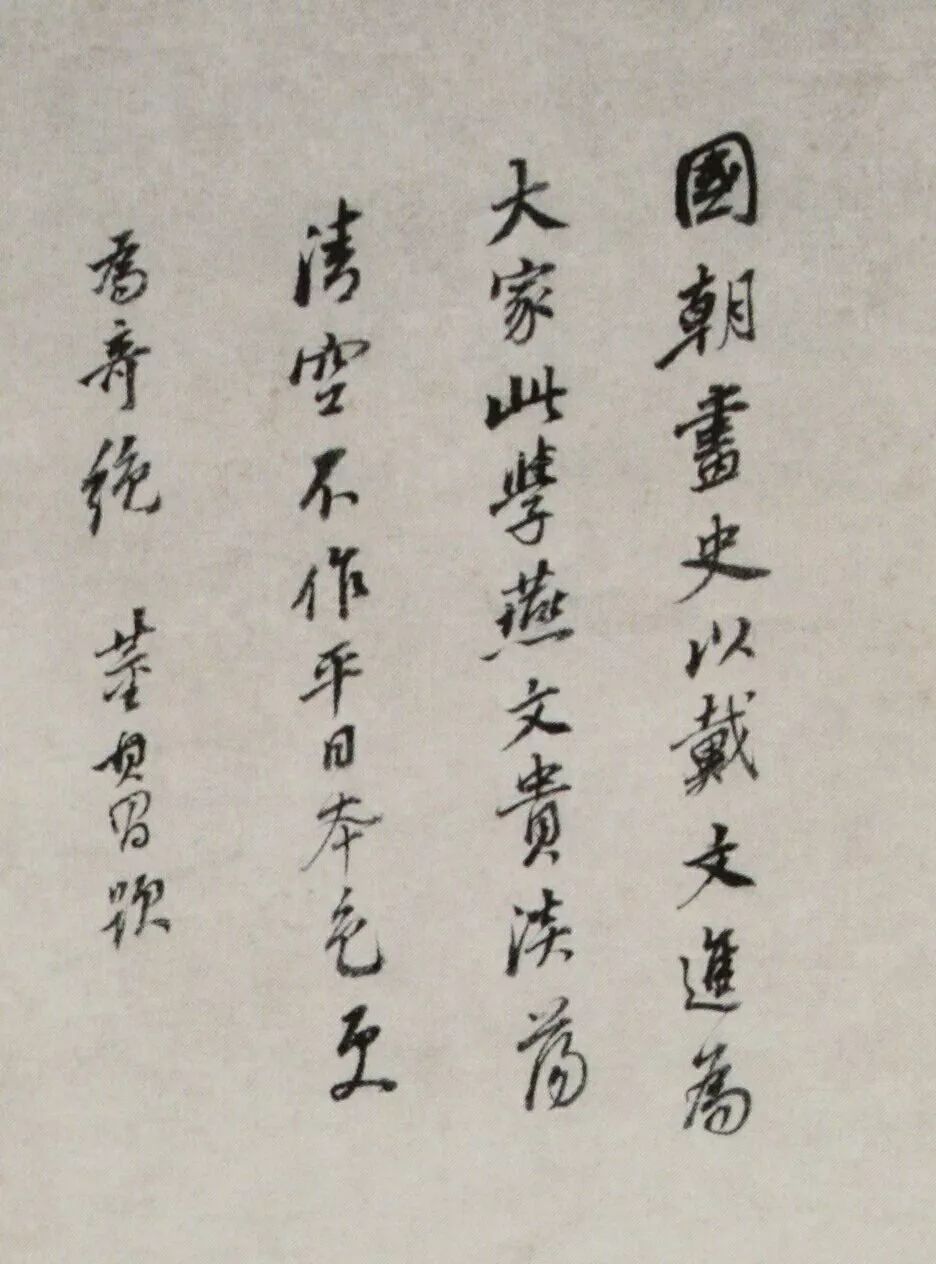 國朝畫史以戴文進為
大家此學燕文貴淡蕩
清空不作平日本色更
為奇絕 董其昌題